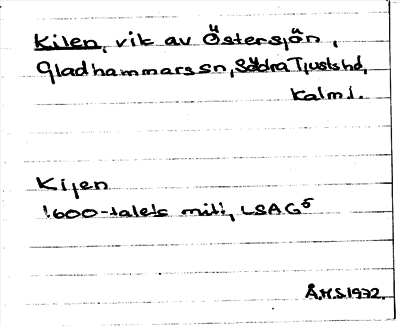 Kilen, vik av Östersjön,
Gladhammars sn, Södra Tjusts hd,
Kalm l.
Kijen
1600-talets mitt, LSA G5
Å.H.S. 1972.